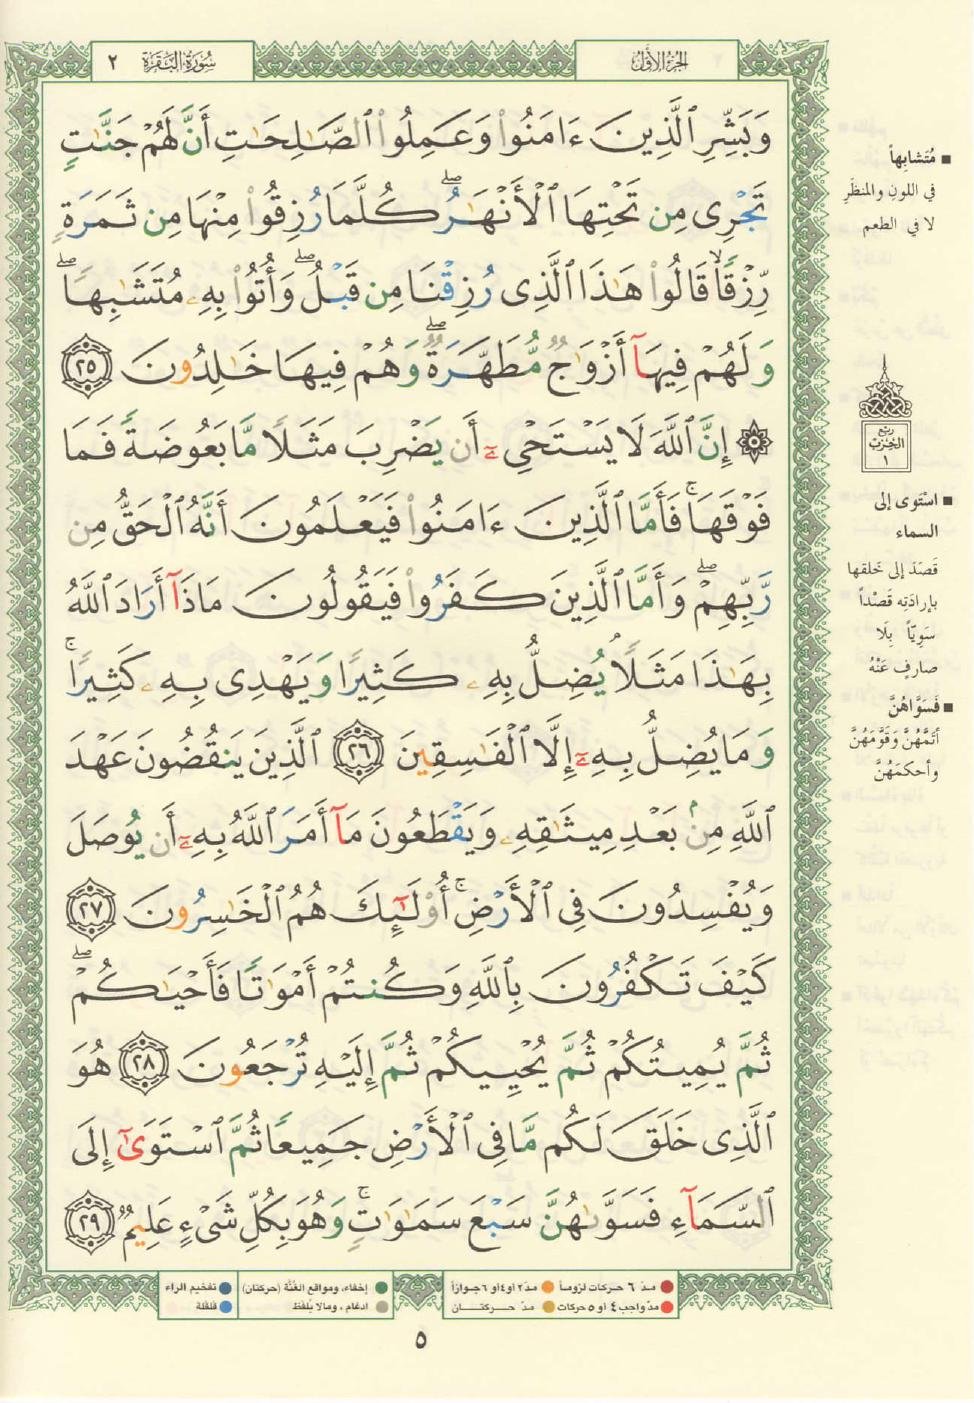 الجزء الأول
سورة البقرة ٢
وَبَشِّرِ ٱلَّذِينَ ءَامَنُوا۟ وَعَمِلُوا۟ ٱلصَّـٰلِحَـٰتِ أَنَّ لَهُمْ جَنَّـٰتٍ
تَجْرِى مِن تَحْتِهَا ٱلْأَنْهَـٰرُ ۖ كُلَّمَا رُزِقُوا۟ مِنْهَا مِن ثَمَرَةٍ
رِّزْقًا ۙ قَالُوا۟ هَـٰذَا ٱلَّذِى رُزِقْنَا مِن قَبْلُ ۖ وَأُتُوا۟ بِهِۦ مُتَشَـٰبِهًا ۖ
وَلَهُمْ فِيهَآ أَزْوَٰجٌ مُّطَهَّرَةٌ ۖ وَهُمْ فِيهَا خَـٰلِدُونَ ٢٥
۞ إِنَّ ٱللَّهَ لَا يَسْتَحْىِۦٓ أَن يَضْرِبَ مَثَلًا مَّا بَعُوضَةً فَمَا
فَوْقَهَا ۚ فَأَمَّا ٱلَّذِينَ ءَامَنُوا۟ فَيَعْلَمُونَ أَنَّهُ ٱلْحَقُّ مِن
رَّبِّهِمْ ۖ وَأَمَّا ٱلَّذِينَ كَفَرُوا۟ فَيَقُولُونَ مَاذَآ أَرَادَ ٱللَّهُ
بِهَـٰذَا مَثَلًا ۘ يُضِلُّ بِهِۦ كَثِيرًا وَيَهْدِى بِهِۦ كَثِيرًا ۚ
وَمَا يُضِلُّ بِهِۦٓ إِلَّا ٱلْفَـٰسِقِينَ ٢٦ ٱلَّذِينَ يَنقُضُونَ عَهْدَ
ٱللَّهِ مِنۢ بَعْدِ مِيثَـٰقِهِۦ وَيَقْطَعُونَ مَآ أَمَرَ ٱللَّهُ بِهِۦٓ أَن يُوصَلَ
وَيُفْسِدُونَ فِى ٱلْأَرْضِ ۚ أُو۟لَـٰٓئِكَ هُمُ ٱلْخَـٰسِرُونَ ٢٧
كَيْفَ تَكْفُرُونَ بِٱللَّهِ وَكُنتُمْ أَمْوَٰتًا فَأَحْيَـٰكُمْ ۖ
ثُمَّ يُمِيتُكُمْ ثُمَّ يُحْيِيكُمْ ثُمَّ إِلَيْهِ تُرْجَعُونَ ٢٨ هُوَ
ٱلَّذِى خَلَقَ لَكُم مَّا فِى ٱلْأَرْضِ جَمِيعًا ثُمَّ ٱسْتَوَىٰٓ إِلَى
ٱلسَّمَآءِ فَسَوَّىٰهُنَّ سَبْعَ سَمَـٰوَٰتٍ ۚ وَهُوَ بِكُلِّ شَىْءٍ عَلِيمٌ ٢٩
■ مُتَشابِهاً
في اللون والمنظَرِ
لا في الطعم
ربع
الحزب
١
■ استَوى إلى
السماء
قَصَدَ إلى خَلقها
بإرادَتِه قَصْداً
سَوِيّاً بِلَا
صارفٍ عَنْهُ
■ فَسَوَّاهُنَّ
أتَمَّهُنَّ وَقَوَّمَهُنَّ
وأحكمَهُنَّ
مدّ ٦ حركات لزوماً ● مدّ ٢ أو ٤ أو ٦ جوازاً
مدّ واجب ٤ أو ٥ حركات ● مدّ حركتان
إخفاء، ومواقع الغُنَّة (حركتان) ● تفخيم الراء
ادغام ، وما لا يُلفَظ ● قلقلة
٥